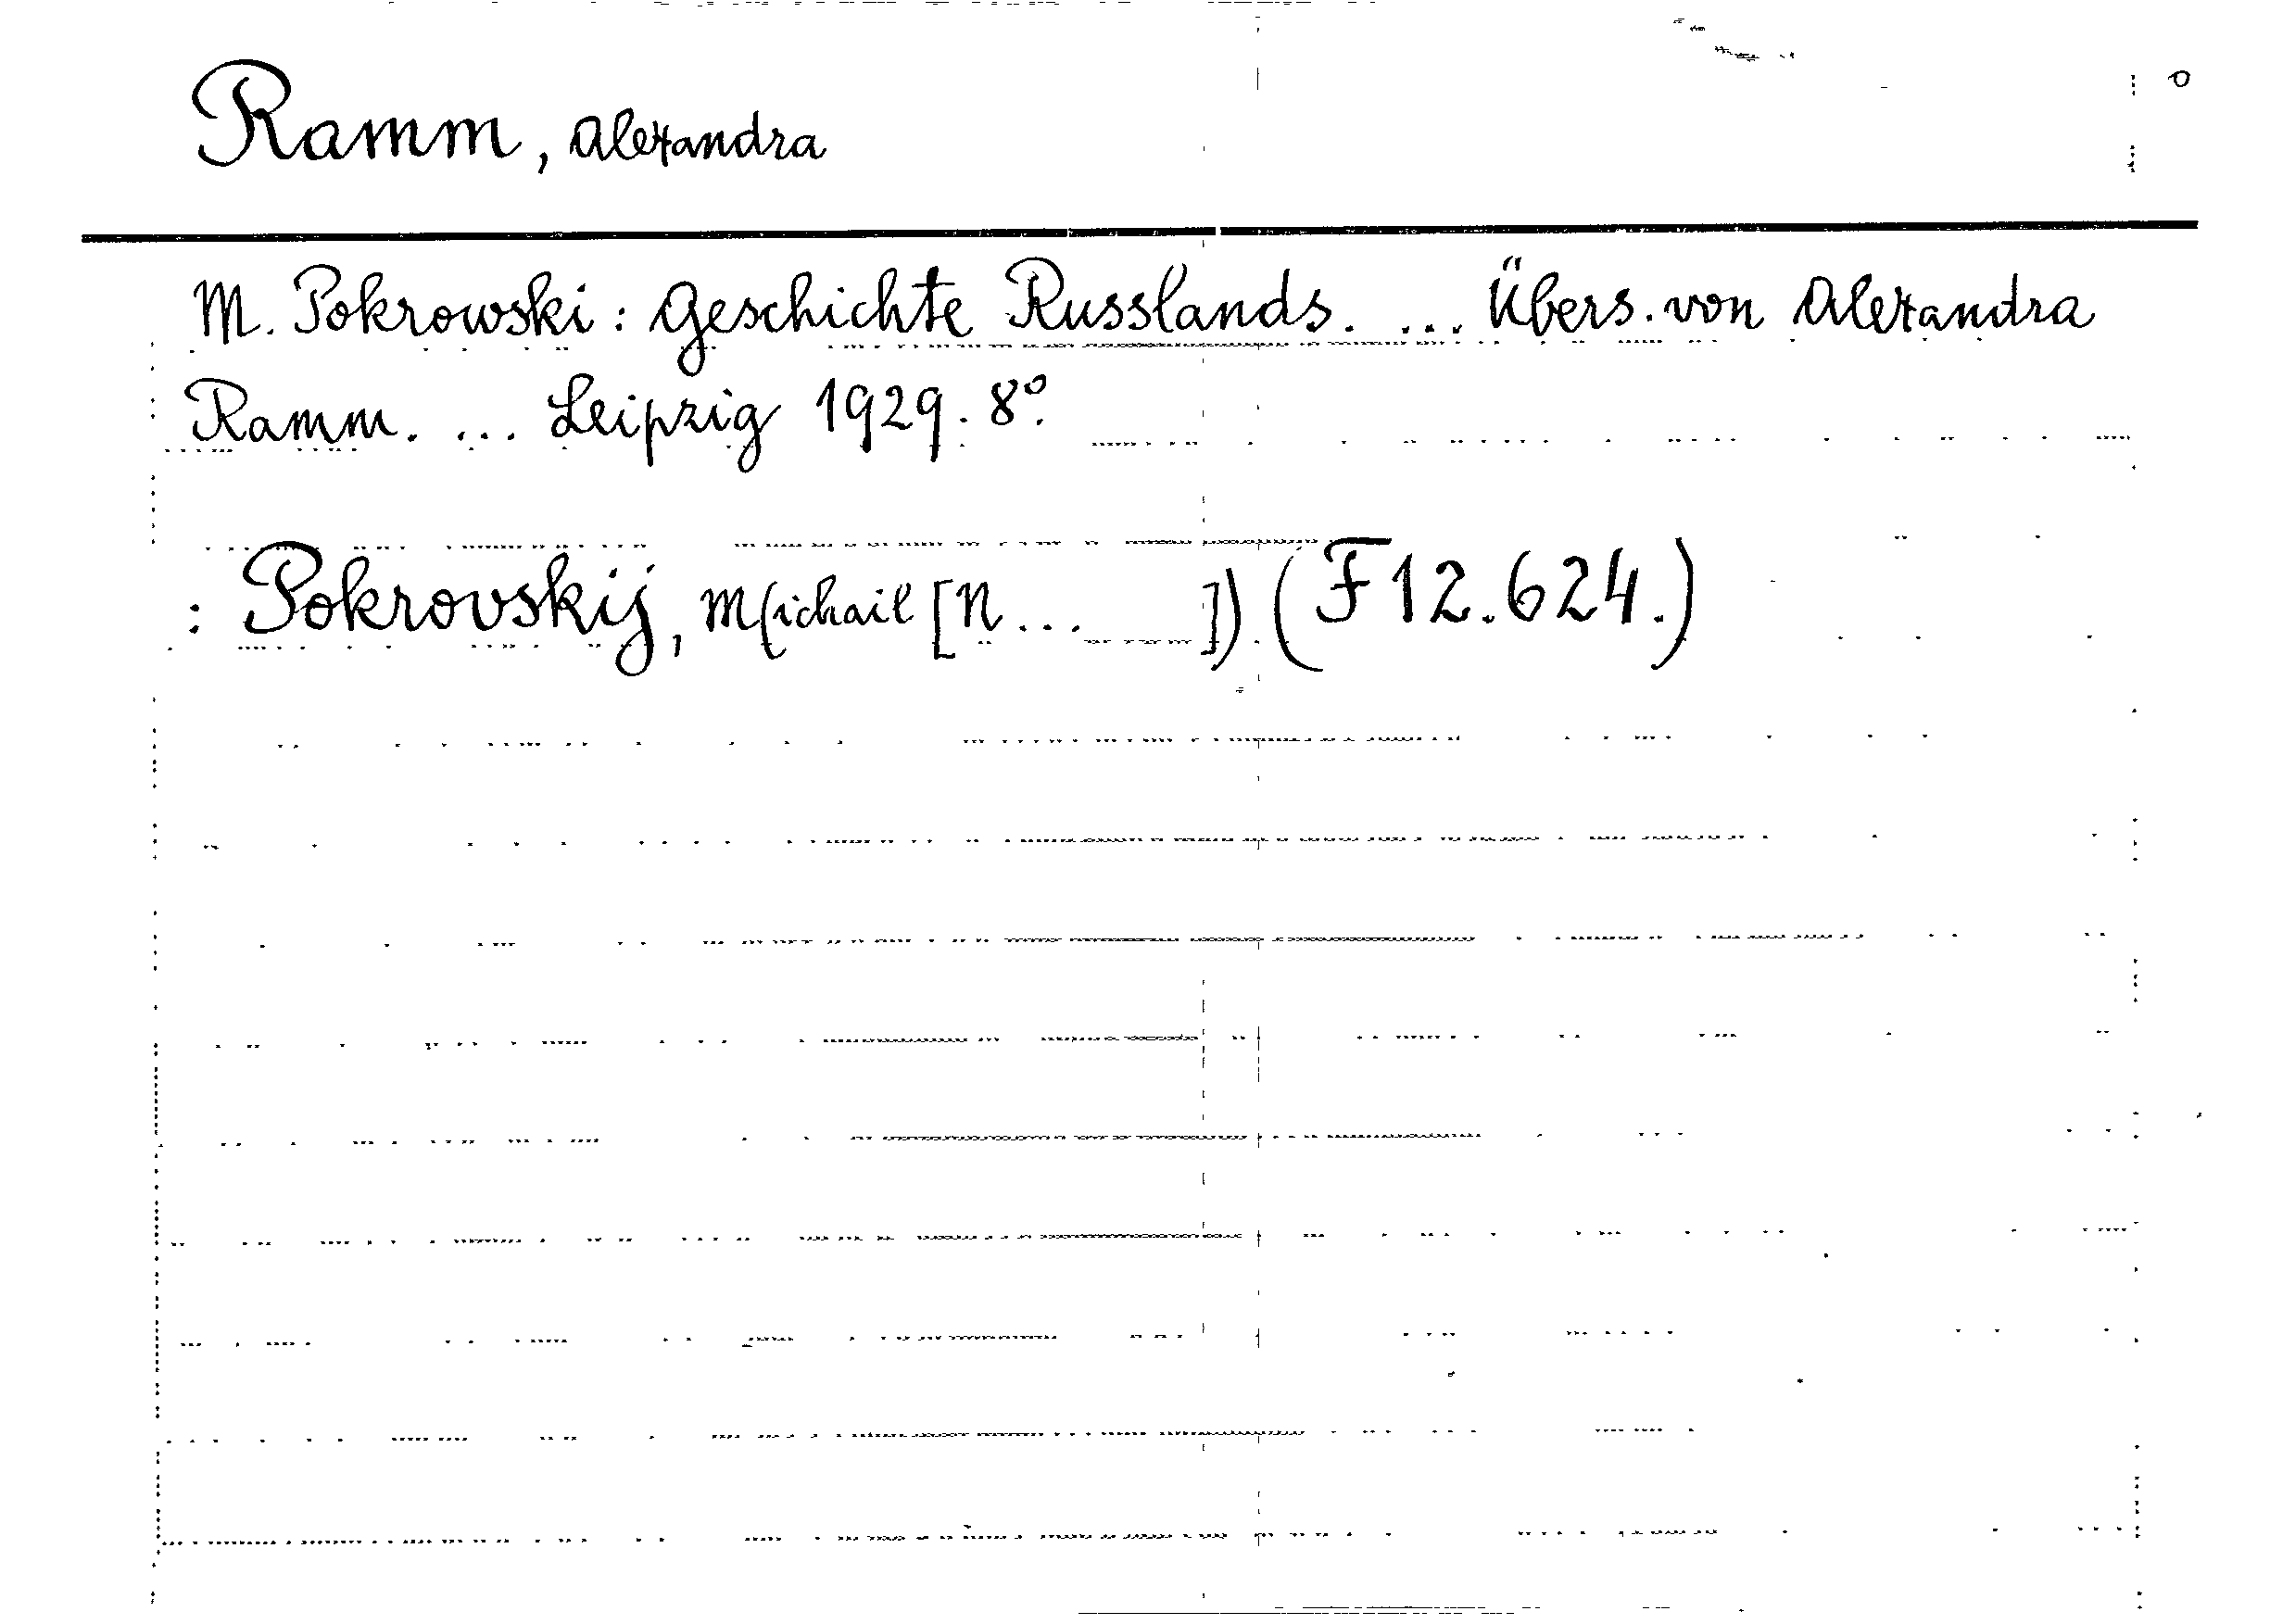 Ramm, Alexandra
M. Pokrowski: Geschichte Russlands. ... Übers. von Alexandra
Ramm. ... Leipzig 1929. 8°.
: Pokrovskij, M(ichail [N... ]) (F 12.624.)